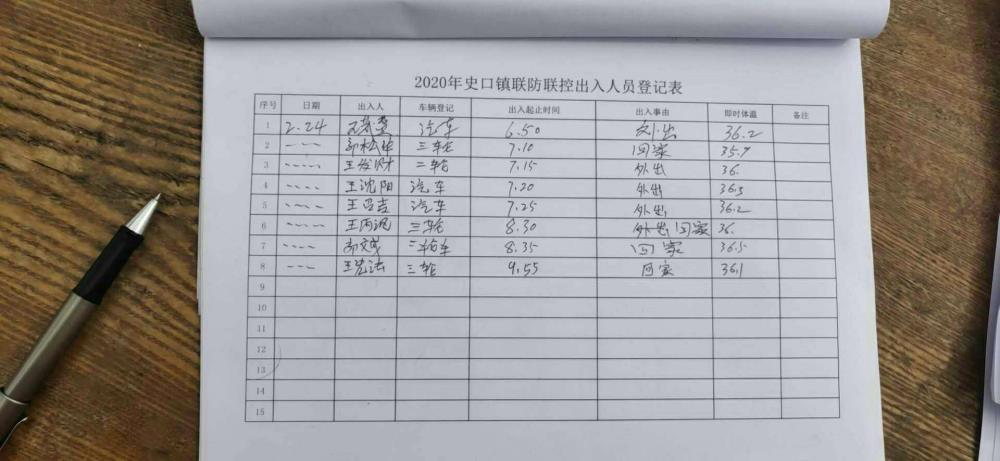 2020年史口镇联防联控出入人员登记表
序号 日期 出入人 车辆登记 出入起止时间 出入事由 即时体温 备注
1 2.24 汽车 6.50 外出 36.2
2 三轮 7.10 回家 35.7
3 王发财 二轮 7.15 外出 36.
4 王沈阳 汽车 7.20 外出 36.3
5 汽车 7.25 外出 36.2
6 三轮 8.30 外出回家 36.
7 8.35 回家 36.5
8 三轮 9.55 回家 36.1
9
10
11
12
13
14
15